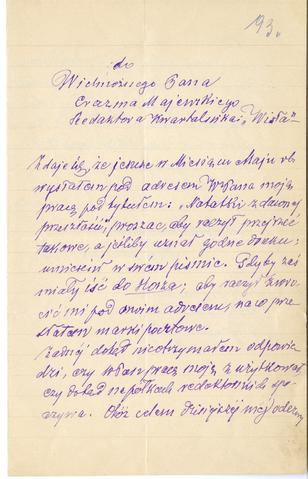 93.
do
Wielmożnego Pana
Erazma Majewskiego
Redaktora Kwartalnika „Wisła”
Zdaje się, że jeszcze w Miesiącu Maju rb.
wysłałem pod adresem WPana moją
pracę pod tytułem: „Notatki z dawnej
przeszłości”, prosząc, aby raczył przejrzeć
takowe, a jeżeliby uznał godne druku;
umieścił w swém piśmie. Gdyby zaś
miały iść do Kosza; aby raczył zwró-
cić mi pod moim adresem, na co prze-
słałem marki pocztowe.
Żadnéj dotąd nie otrzymałem odpowie-
dzi, czy WPan pracę moją zużytkował
czy dotąd na półkach redaktorskich spo-
czywa. Otóż celem dzisiejszéj méj odezwy